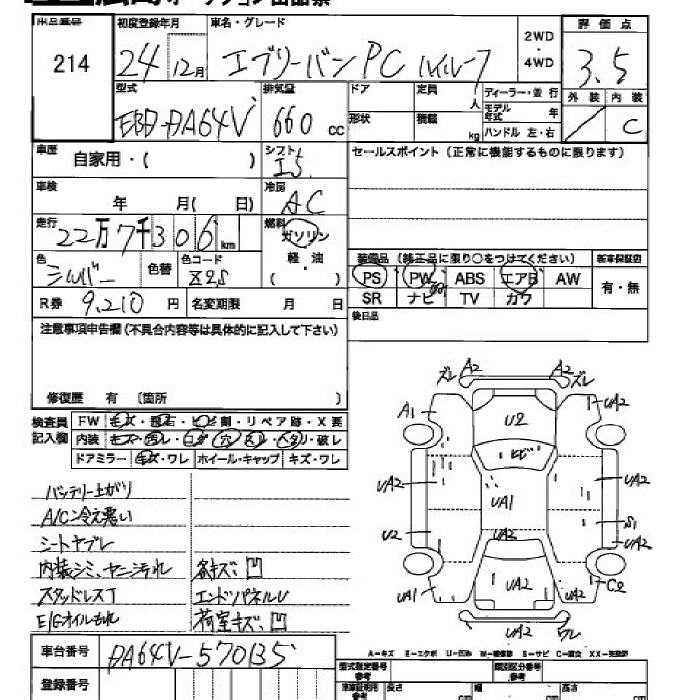 出品番号 214
初度登録年月 24年12月
車名・グレード エブリーバン PC ハイルーフ
2WD・4WD
評価点 3.5
型式 EBD-DA64V
排気量 660 cc
ドア
定員 人
ディーラー・並行
形状
積載 kg
モデル年式 年
ハンドル 左・右
外装
内装 C
車歴 自家用・( )
シフト I5
セールスポイント(正常に機能するものに限ります)
車検 年 月( 日)
冷房 AC
走行 22万7千306km
燃料 ガソリン 軽・油 ( )
色 シルバー 色替
色コード Z2S
装備品 (純正品に限り○をつけてください)
新車保証書 有・無
PS PW ABS エアB AW
SR ナビ TV カワ
R券 9,210円 名変期限 月 日
後日品
注意事項申告欄(不具合内容等は具体的に記入して下さい)
修復歴 有 〔箇所 〕
検査員記入欄
FW キズ・飛石・ヒビ・割・リペア跡・X要
内装
ドアミラー キズ・ワレ ホイール・キャップ キズ・ワレ
バッテリー上がり
A/C冷え悪い
シートヤブレ
内装シミ、ヤニ汚れ 各キズ、凹
スタッドレスT エンドパネルU
E/Gオイルもれ 荷室キズ、凹
A2 A2
ズレ ズレ
A1 UA2
U2
ヒビ
UA2 UA1 UA2
U2 UA2 S1
UA2
UA1 UA2 C2
UA2 ワレ
A-キズ E-エクボ U-凹み W-補修跡 S-サビ C-腐食 XX-交換済
車台番号 DA64V-570135
登録番号
型式指定番号 参考
類別区分番号 参考
長さ cm
幅 cm
高さ cm